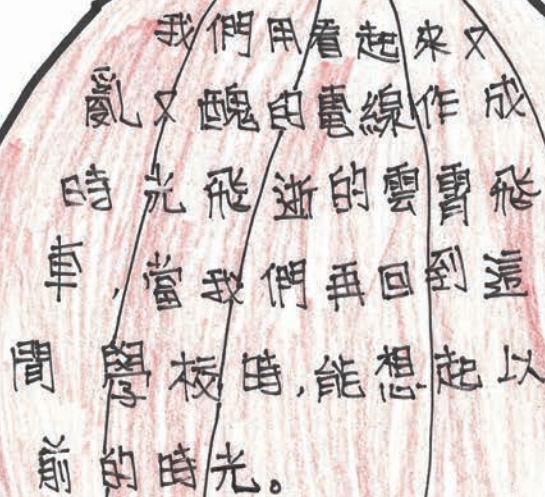 我們用看起來又
亂又醜的電線作成
時光飛逝的雲霄飛
車,當我們再回到這
間學校時,能想起以
前的時光。